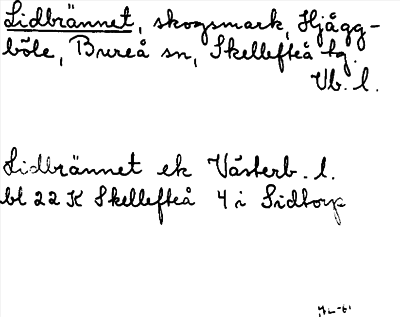 Lidbrännet, skogsmark, Hjågg-
böle, Bureå sn, Skellefteå tg.
Vb. l.
Lidbrännet ek Västerb. l.
bl 22 K Skellefteå 4 i Sidtorp